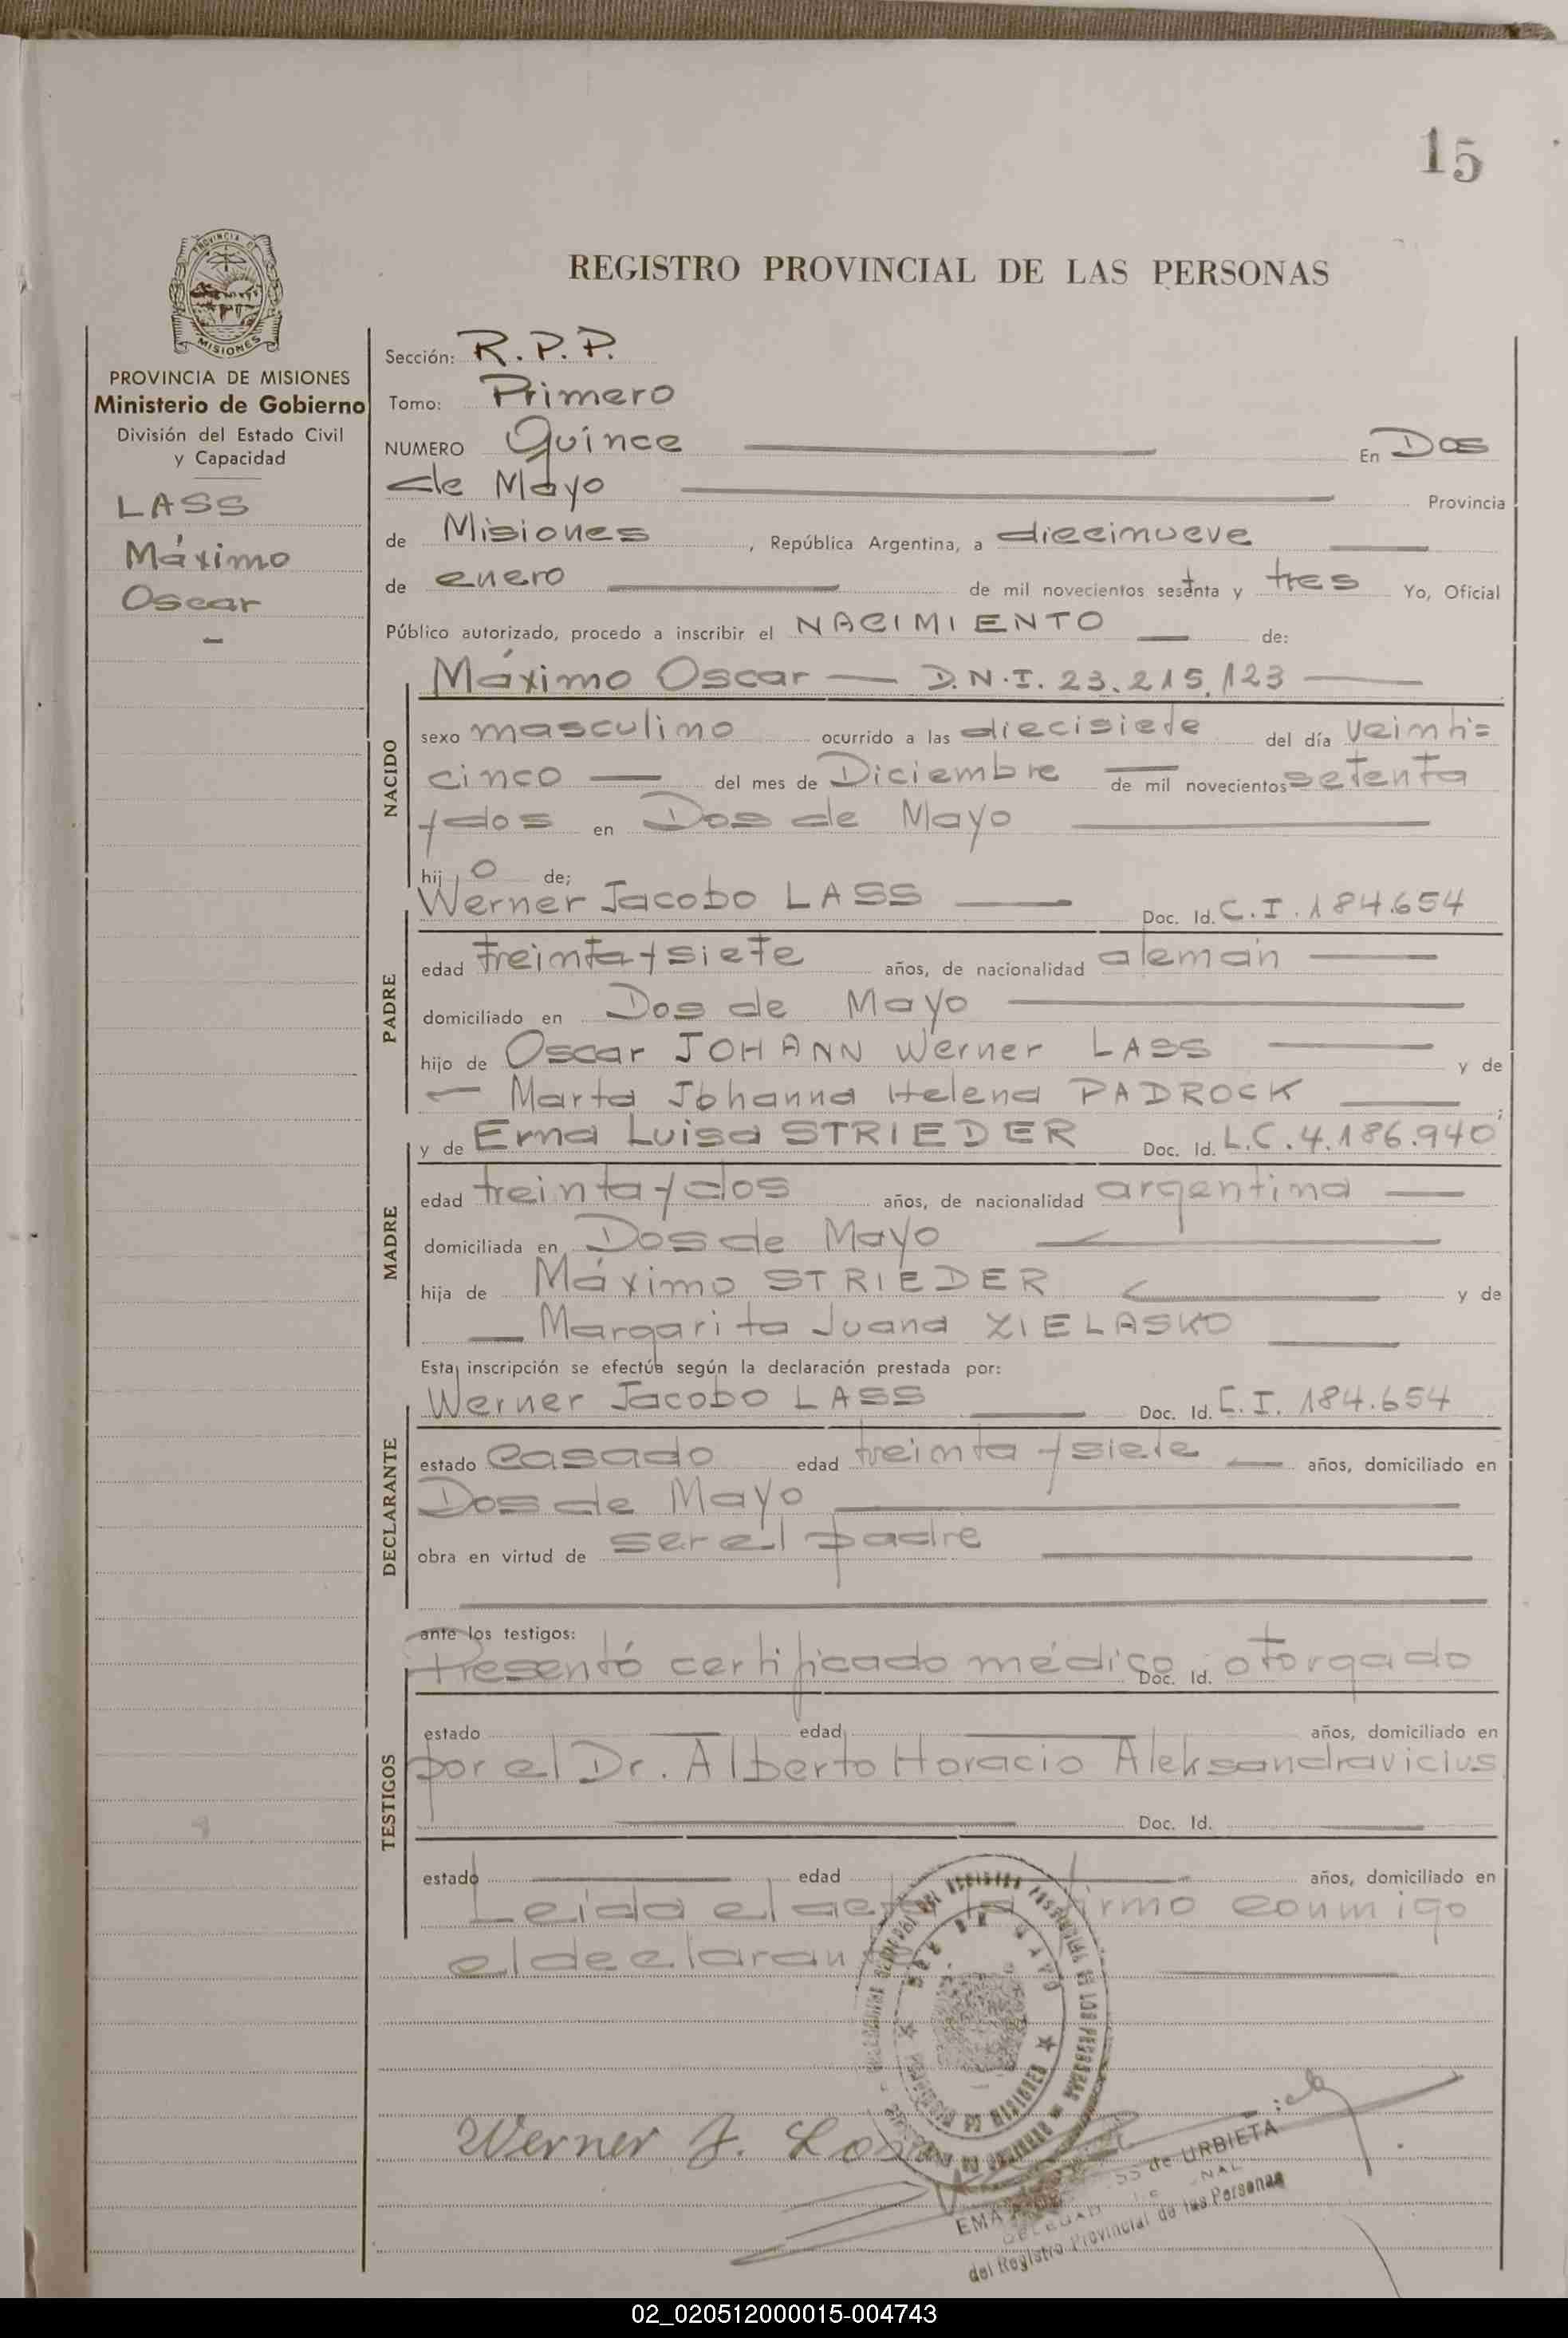 15
PROVINCIA DE
MISIONES
REGISTRO PROVINCIAL DE LAS PERSONAS
PROVINCIA DE MISIONES
Ministerio de Gobierno
División del Estado Civil
y Capacidad
LASS
Máximo
Oscar
Sección: R.P.P.
Tomo: Primero
NUMERO Quince En Dos
de Mayo Provincia
de Misiones, República Argentina, a diecinueve
de enero de mil novecientos setenta y tres Yo, Oficial
Público autorizado, procedo a inscribir el NACIMIENTO de:
NACIDO
Máximo Oscar — D.N.I. 23.215.123
sexo masculino ocurrido a las diecisiete del día veinti=
cinco — del mes de Diciembre — de mil novecientos setenta
y dos en Dos de Mayo
hij o de;
PADRE
Werner Jacobo LASS Doc. Id. C.I. 184.654
edad treinta y siete años, de nacionalidad alemán
domiciliado en Dos de Mayo
hijo de Oscar JOHANN Werner LASS y de
— Marta Johanna Helena PADROCK ;
MADRE
y de Erna Luisa STRIEDER Doc. Id. L.C. 4.186.940
edad treinta y dos años, de nacionalidad argentina
domiciliada en Dos de Mayo
hija de Máximo STRIEDER y de
— Margarita Juana ZIELASKO
Esta inscripción se efectúa según la declaración prestada por:
DECLARANTE
Werner Jacobo LASS Doc. Id. C.I. 184.654
estado casado edad treinta y siete años, domiciliado en
Dos de Mayo
obra en virtud de ser el padre
ante los testigos:
TESTIGOS
Presentó certificado médico Doc. Id. otorgado
estado edad años, domiciliado en
por el Dr. Alberto Horacio Aleksandravicius
Doc. Id.
estado edad años, domiciliado en
Leida el acta la firmo conmigo
el declarante
DOS DE MAYO
Werner J. Lass
EMA de URBIETA
del Registro Provincial de las Personas
02_020512000015-004743